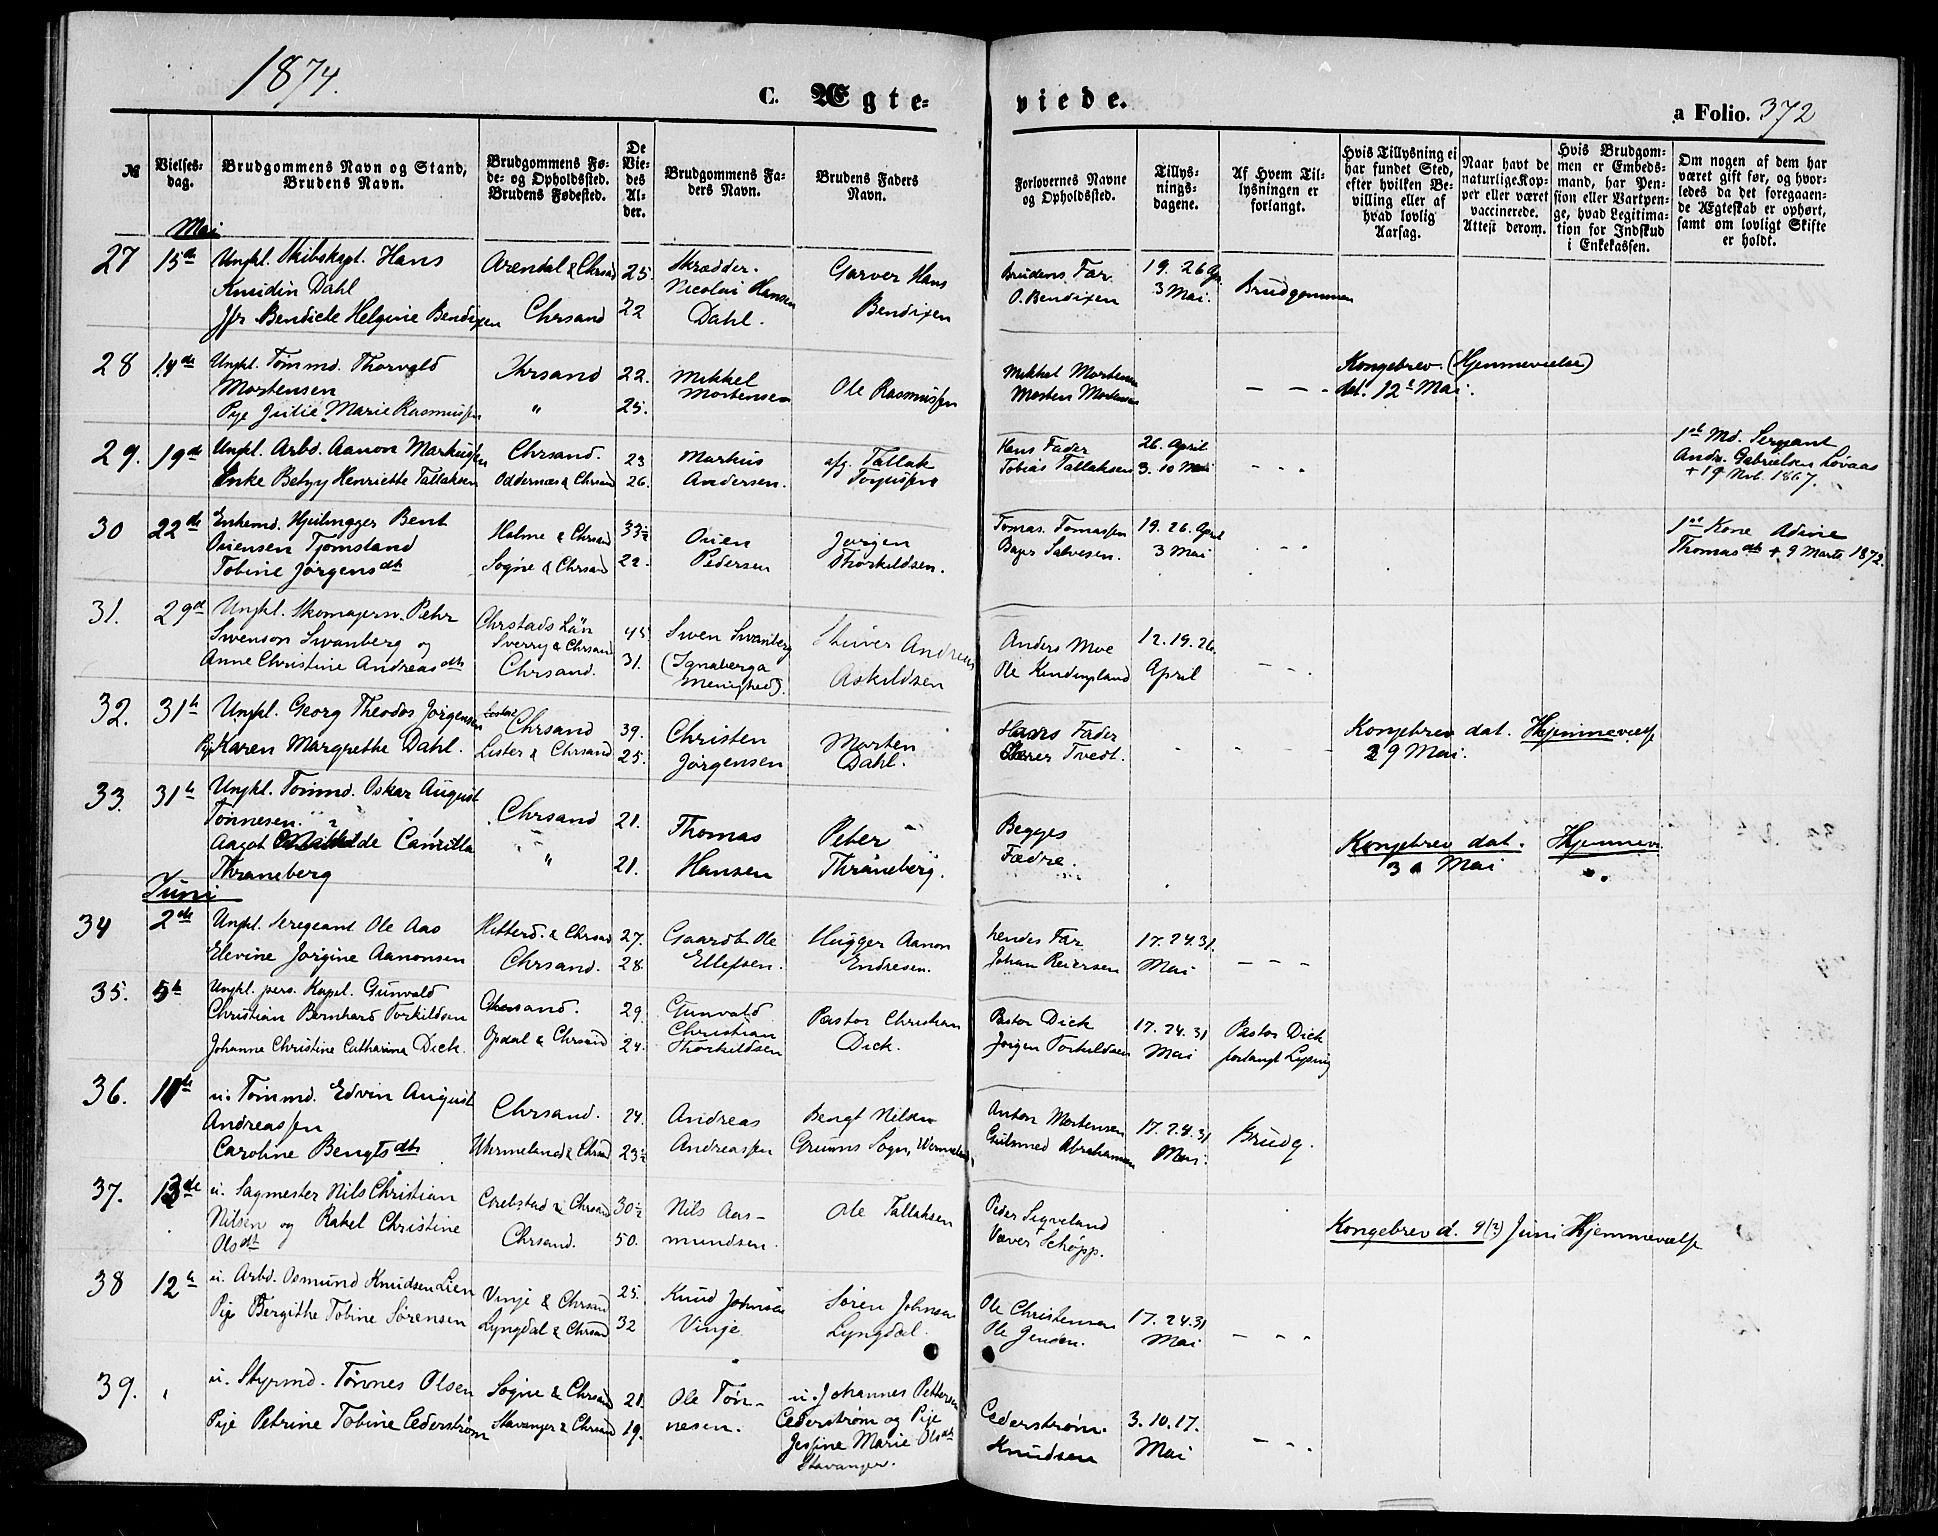 1874.
C. Ægte-
viede.
a Folio. 372
№
Vielses-
dag.
Brudgommens Navn og Stand,
Brudens Navn.
Brudgommens Fø-
de- og Opholdssted.
Brudens Fødested.
De
Vie-
des
Al-
der.
Brudgommens Fa-
ders Navn.
Brudens Faders
Navn.
Forlovernes Navne
og Opholdssted.
Tillys-
nings-
dagene.
Af Hvem Til-
lysningen er
forlangt.
Hvis Tillysning ei
har fundet Sted,
efter hvilken Be-
villing eller af
hvad lovlig
Aarsag.
Naar havt de
naturlige Kop-
per eller været
vaccinerede.
Attest derom.
Hvis Brudgom-
men er Embeds-
mand, har Pen-
sion eller Vartpen-
ge, hvad Legitima-
tion for Indskud
i Enkekassen.
Om nogen af dem har
været gift før, og hvor-
ledes da det foregaaen-
de Ægteskab er ophørt,
samt om lovligt Skifte
er holdt.
Mai
27 15de Ungkl. Skibskapt. Hans Arendal & Chrsand 25. Skrædder. Garver Hans Brudens Far 19. 26 Ap. Brudgommen
Knudin Dahl Nicolai Hansen Bendixen O. Bendixen 3 Mai.
Jfr Bendicte Helgine Bendixen Chrsand 22 Dahl.
28 14de Ungkl. Tømmd. Thorvald Chrsand 22. Mikkel Ole Rasmussen Mikkel Mortensen — — - Kongebrev (Hjemmevielse)
Mortensen Mortensen Morten Mortensen dat. 12t Mai.
Pige Julie Marie Rasmussen " 25.
29. 19de Ungkl. Arbd. Aanon Markussen Chrsand. 23 Markus afg. Tallak Hans Fader 26. April - - - 1st Md. Sergiant
Enke Betzy Henriette Tallaksen Oddernæs & Chrsand 26. Andersen. Torjussen Tobias Tallaksen 3. 10 Mai Andr. Gabrielsen Løvaas
+ 19 Nvb. 1867.
30 22de Enkemd. Hjulmgger Bent Holme & Chrsand 33½ Ouen Jørgen Tomas. Tomassen 19. 26. April - - 1st Kone Adine
Ouensen Tjomstand Pedersen Thorkildsen. Salvesen. 3 Mai Thomasdtr + 9 Marts 1872.
Tobine Jørgensdtr Søgne & Chrsand 22.
31. 29de Ungkl. Skomagersv. Pehr Chrstads Län 45 Swen Swanberg Andreas Anders Moe 12. 19. 26. - - -
Swenson Swanberg og Sverrig & Chrsand (Ignaberga Askildsen Ole April
Anne Christine Andreasdtr Chrsand. 31. Menighed).
32. 31te Ungkl. Georg Theodor Jørgensen Chrsand 39. Christen Morten Hans Fader - - - Kongebrev dat. Hjemmevielse
Pige Karen Margrethe Dahl. Lister & Chrsand 25. Jørgensen Dahl. Tvedt. 29 Mai.
33. 31te Ungkl. Tømmd. Oskar August Chrsand 21. Thomas Peter Begges Kongebrev dat. Hjemmev.
Tønnesen. Hansen Thraneberg. Fædre. 30 Mai
Aagot Mathilde Camilla " 21.
Thraneberg
Juni
34 2de Ungkl. Seregeant Ole Aas Hitterd. & Chrsand 27. Gaardb. Ole Hugger Aanon hendes Far 17. 24. 31. — — -
Elevine Jørgine Aanonsen Chrsand. 28. Ellefsen. Endresen. Johan Reiersen Mai
35. 5te Ungkl. pers. Kapel. Gunvald Chrsand. 29. Gunvald Pastor Christian Pastor Dick 17. 24. 31 Pastor Dick
Christian Bernhard Torkildsen Christian Dick. Jørgen Torkildsen Mai forlangt Lysning
Johanne Christine Catharina Dick. Opdal & Chrsand 24. Thorkildsen
36. 11te u. Tømmd. Edvin August Chrsand. 24. Andreas Bengt Nilsen Anton Mortensen 17. 24. 31 Brudg.
Andreassen Andreassen Grums Sogn, Wermeland, Abrahamsen Mai.
Caroline Bengtsdtr Wermeland & Chrsand 23½
37. 13de u. Sagmester Nils Christian Carlstad & Chrsand 30½ Nils Aas- Ole Tallaksen Peder Sigveland Kongebrev d. 9(?) Juni Hjemmevielse
Nilsen og Rakel Christine Chrsand. 50. mundsen. Væver Schöpp.
Olsdtr
38 12te u. Arbd. Osmund Knudsen Lien Vinje & Chrsand 25. Knud Johnsen Søren Johnsen Ole Christensen 17. 24. 31 — - -
Pige Bergithe Tobine Sørensen Lyngdal & Chrsand 32 Vinje. Lyngdal. Ole Jensen. Mai
39. u. Styrmd. Tønnes Olsen Søgne & Chrsand 21. Ole Tøn- u. Johannes Pettersen Cederstrøm. 3. 10. 17. — - -
Pige Petrine Tobine Cederstrøm Stavanger & Chrsand 19. nesen. Cederstrøm og Pige Knudsen Mai
Jessine Marie Olsdtr
Stavanger.